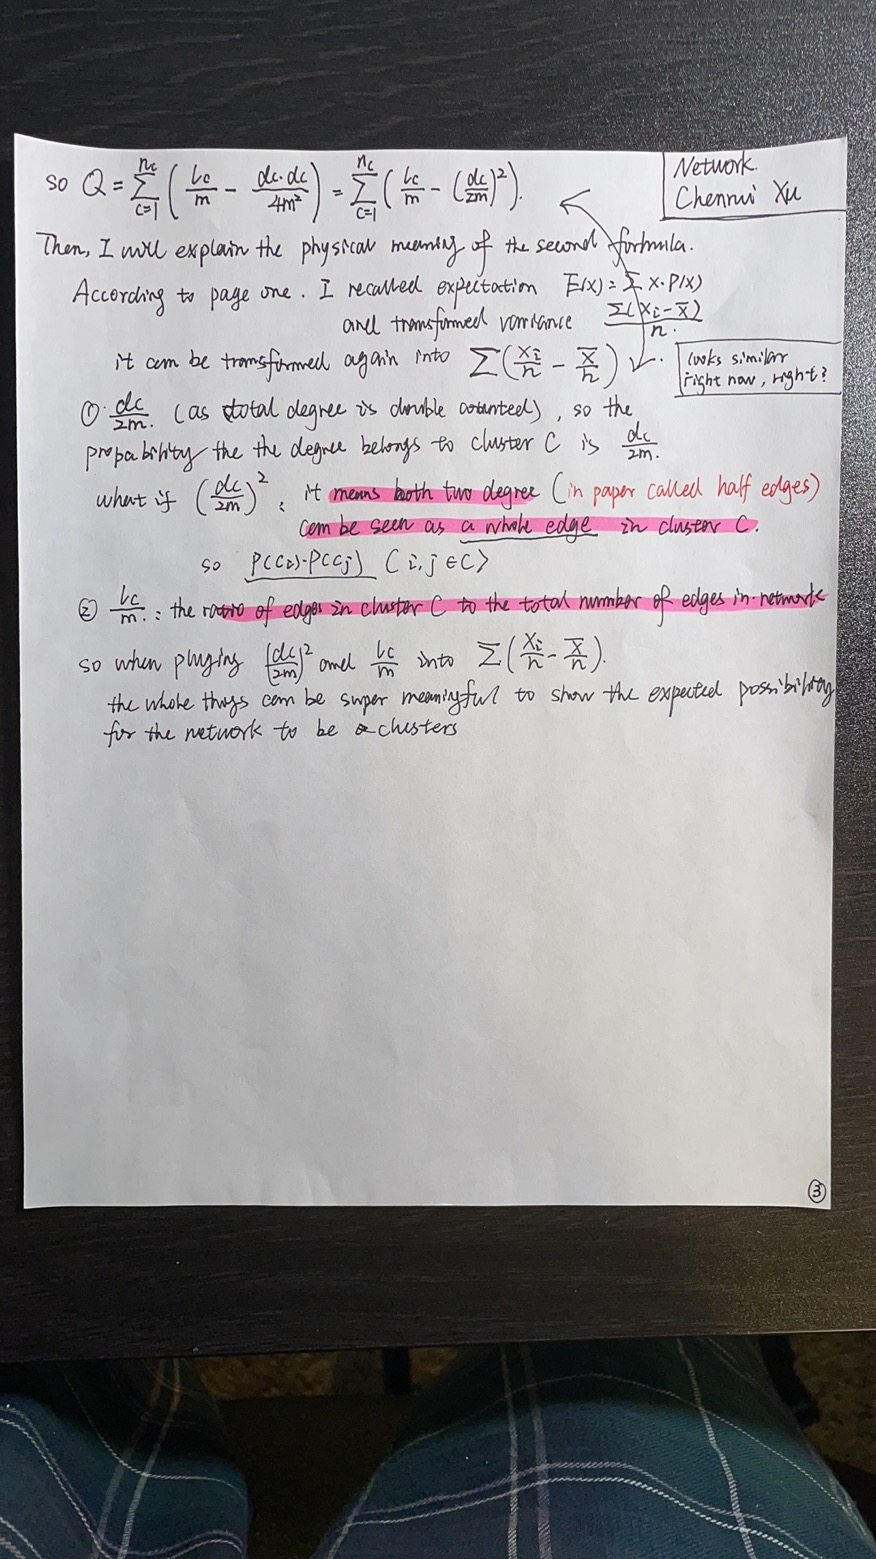 so Q = \sum_{c=1}^{n_c} ( \frac{l_c}{m} - \frac{d_c \cdot d_c}{4m^2} ) = \sum_{c=1}^{n_c} ( \frac{l_c}{m} - (\frac{d_c}{2m})^2 ).
Network.
Chenrui Xu
Then, I will explain the physical meaning of the second formula.
According to page one. I recalled expectation E(x) = \sum x \cdot P(x)
and transformed variance \frac{\sum (x_i - \bar{x})}{n}.
it can be transformed again into \sum ( \frac{x_i}{n} - \frac{\bar{x}}{n} ).
looks similar
right now, right?
① \frac{d_c}{2m}. (as total degree is double counted), so the
propability the the degree belongs to cluster C is \frac{d_c}{2m}.
what if (\frac{d_c}{2m})^2 : it means both two degree (in paper called half edges)
can be seen as a whole edge in cluster C.
so P(C_i) \cdot P(C_j) (i, j ∈ C)
② \frac{l_c}{m}. : the ratio of edges in cluster C to the total number of edges in network
so when pluying (\frac{d_c}{2m})^2 and \frac{l_c}{m} into \sum ( \frac{x_i}{n} - \frac{\bar{x}}{n} ).
the whole thigs can be super meaningful to show the expected possibility
for the network to be a clusters
③